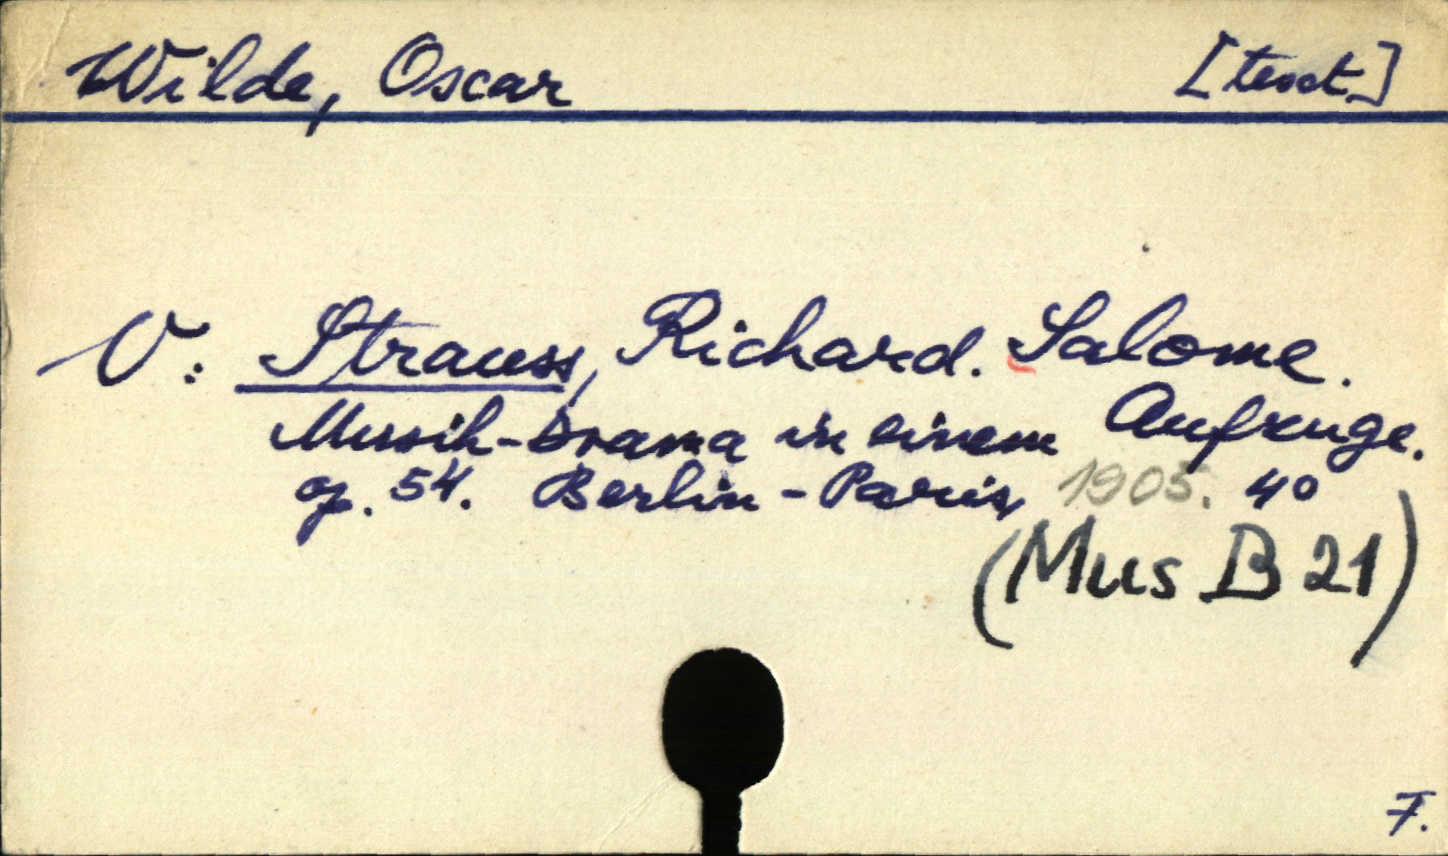 Wilde, Oscar [text]
V: Strauss, Richard. Salome.
Musik-Drama in einem Aufzuge.
op. 54. Berlin-Paris, 1905. 4°
(Mus B 21)
F.